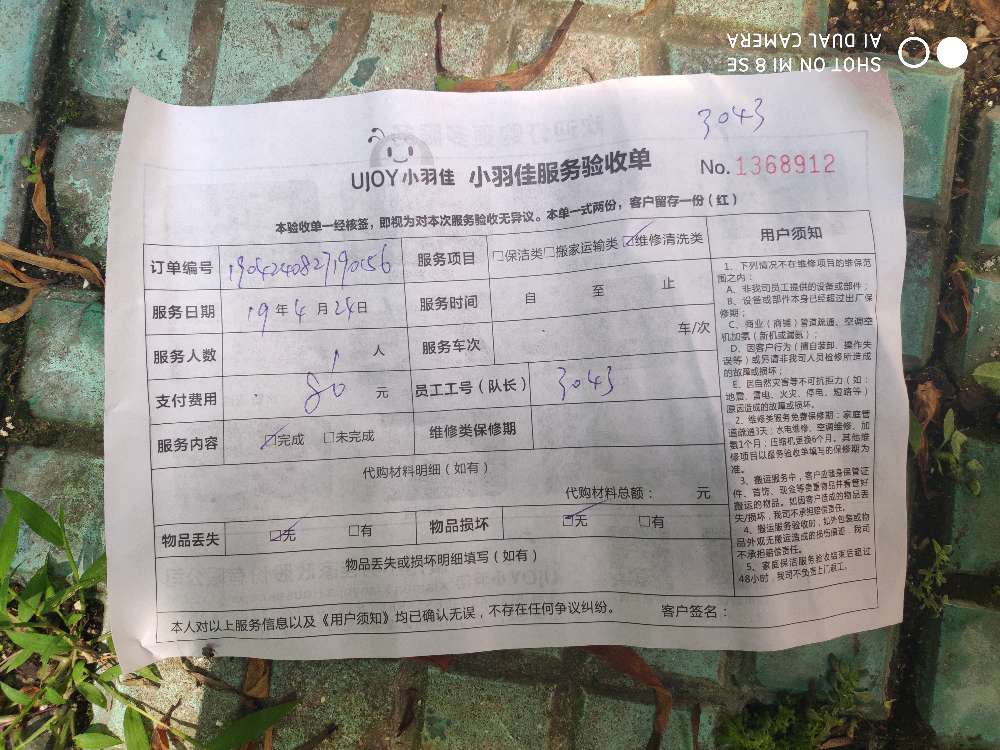 SHOT ON MI 8 SE
AI DUAL CAMERA
3043
UJOY 小羽佳 小羽佳服务验收单 No. 1368912
本验收单一经核签，即视为对本次服务验收无异议。本单一式两份，客户留存一份（红）
订单编号 190424082719056 服务项目 □保洁类□搬家运输类☑维修清洗类
服务日期 19年4月24日 服务时间 自 至 止
服务人数 1 人 服务车次 车/次
支付费用 80 元 员工工号（队长） 3043
服务内容 ☑完成 □未完成 维修类保修期
代购材料明细（如有）
代购材料总额： 元
物品丢失 ☑无 □有 物品损坏 ☑无 □有
物品丢失或损坏明细填写（如有）
本人对以上服务信息以及《用户须知》均已确认无误，不存在任何争议纠纷。 客户签名：
用户须知
1、下列情况不在维修项目的维保范
围之内：
A、非我司员工提供的设备或部件；
B、设备或部件本身已经超过出厂保
修期；
C、商业（商铺）管道疏通、空调空
机加氨（新机或漏氨）；
D、因客户行为（擅自装卸、操作失
误等）或另请非我司人员检修所造成
的故障或损坏；
E、因自然灾害等不可抗拒力（如：
地震、雷电、火灾、停电、短路等）
原因造成的故障或损坏。
2、维修类服务免费保修期：家庭管
道疏通3天；水电维修、空调维修、加
氨1个月；压缩机更换6个月。其他维
修项目以服务验收单填写的保修期为
准。
3、搬运服务中，客户应随身保管证
件、首饰、现金等贵重物品并看管好
搬运的物品。如因客户造成的物品丢
失/损坏，我司不承担赔偿责任。
4、搬运服务验收时，如外包装或物
品外观无搬运造成的损伤痕迹，我司
不承担赔偿责任。
5、家庭保洁服务验收结束后超过
48小时，我司不负责上门返工。